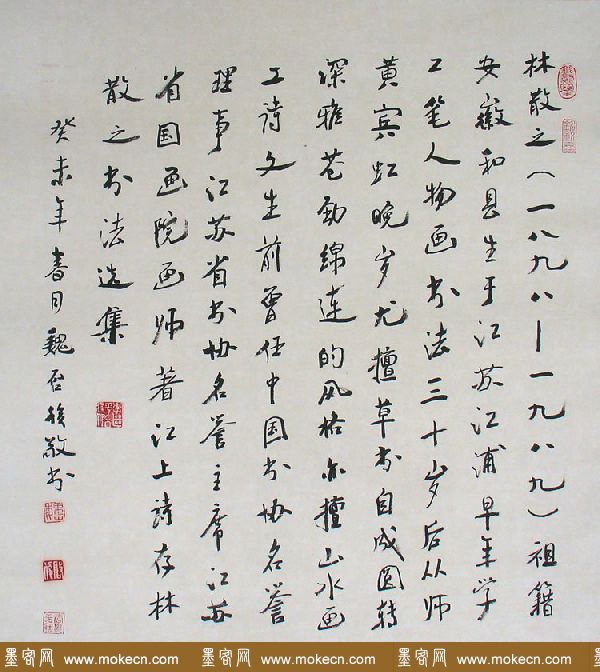 林散之（一八九八—一九八九）祖籍
安徽和县生于江苏江浦早年学
工笔人物画书法三十岁后从师
黄宾虹晚岁尤擅草书自成圆转
深雅苍劲绵连的风格亦擅山水画
工诗文生前曾任中国书协名誉
理事江苏省书协名誉主席江苏
省国画院画师著江上诗存林
散之书法选集
癸未年春月魏启后敬书
墨客网 www.mokecn.com 墨客网 www.mokecn.com 墨客网 www.mokecn.com